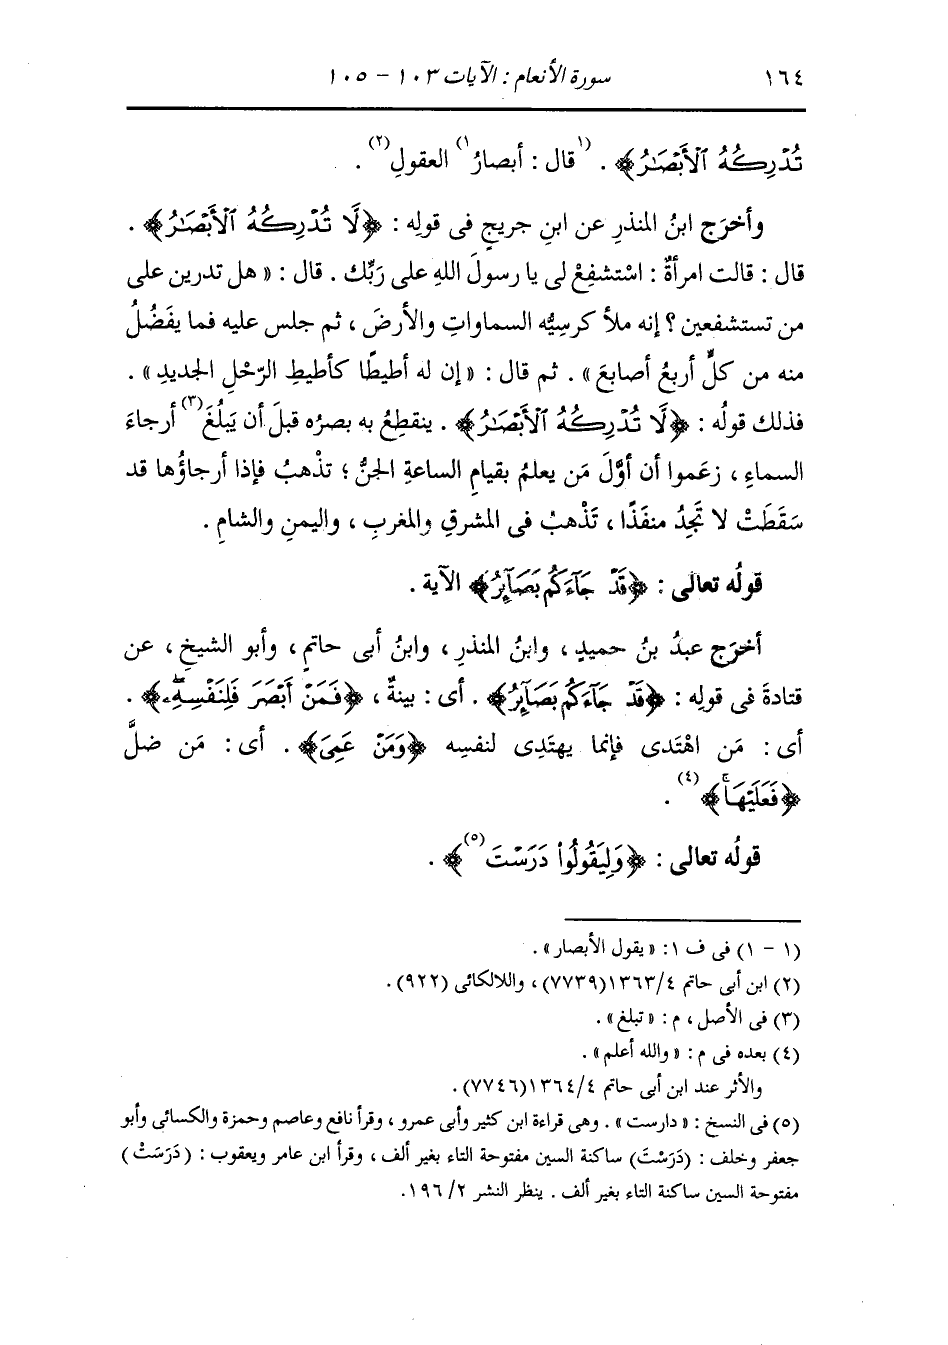 ١٦٤ سورة الأنعام : الآيات ١٠٣ - ١٠٥
تُدْرِكُهُ ٱلْأَبْصَٰرُ﴾ . (١قال : أبصارُ١) العقولِ(٢) .
وأخرَج ابنُ المنذرِ عن ابنِ جريجٍ فى قولِه : ﴿لَّا تُدْرِكُهُ ٱلْأَبْصَٰرُ﴾ .
قال : قالت امرأةٌ : اسْتشفِعْ لى يا رسولَ اللهِ على رَبِّك . قال : « هل تدرين على
من تستشفعين ؟ إنه ملأ كرسِيُّه السماواتِ والأرضَ ، ثم جلس عليه فما يفَضُلُ
منه من كلٍّ أربعُ أصابعَ» . ثم قال : «إن له أطيطًا كأطيطِ الرّحْلِ الجديدِ» .
فذلك قولُه : ﴿لَّا تُدْرِكُهُ ٱلْأَبْصَٰرُ﴾ . ينقطِعُ به بصرُه قبلَ أن يَبلُغَ(٣) أرجاءَ
السماءِ ، زعَموا أن أوَّلَ مَن يعلمُ بقيامِ الساعةِ الجنُّ ؛ تذْهبُ فإذا أرجاؤُها قد
سَقَطَتْ لا تَجِدُ منفَذًا ، تَذْهبُ فى المشرقِ والمغربِ ، واليمنِ والشامِ .
قولُه تعالى : ﴿قَدْ جَآءَكُم بَصَآئِرُ﴾ الآية .
أخرَج عبدُ بنُ حميدٍ ، وابنُ المنذرِ ، وابنُ أبى حاتمٍ ، وأبو الشيخِ ، عن
قتادةَ فى قولِه : ﴿قَدْ جَآءَكُم بَصَآئِرُ﴾ . أى : بينةٌ ، ﴿فَمَنْ أَبْصَرَ فَلِنَفْسِهِۦۖ﴾ .
أى : مَن اهْتدى فإنما يهتَدِى لنفسِه ﴿وَمَنْ عَمِىَ﴾ . أى : مَن ضلَّ
﴿فَعَلَيْهَاۚ﴾(٤) .
قولُه تعالى : ﴿وَلِيَقُولُوا۟ دَرَسْتَ(٥)﴾ .
(١ - ١) فى ف ١: «يقول الأبصار» .
(٢) ابن أبى حاتم ١٣٦٣/٤(٧٧٣٩) ، واللالكائى (٩٢٢) .
(٣) فى الأصل ، م : «تبلغ» .
(٤) بعده فى م : «والله أعلم» .
والأثر عند ابن أبى حاتم ١٣٦٤/٤(٧٧٤٦) .
(٥) فى النسخ : «دارست» . وهى قراءة ابن كثير وأبى عمرو ، وقرأ نافع وعاصم وحمزة والكسائى وأبو
جعفر وخلف : (دَرَسْتَ) ساكنة السين مفتوحة التاء بغير ألف ، وقرأ ابن عامر ويعقوب : (دَرَسَتْ)
مفتوحة السين ساكنة التاء بغير ألف . ينظر النشر ٢/ ١٩٦.